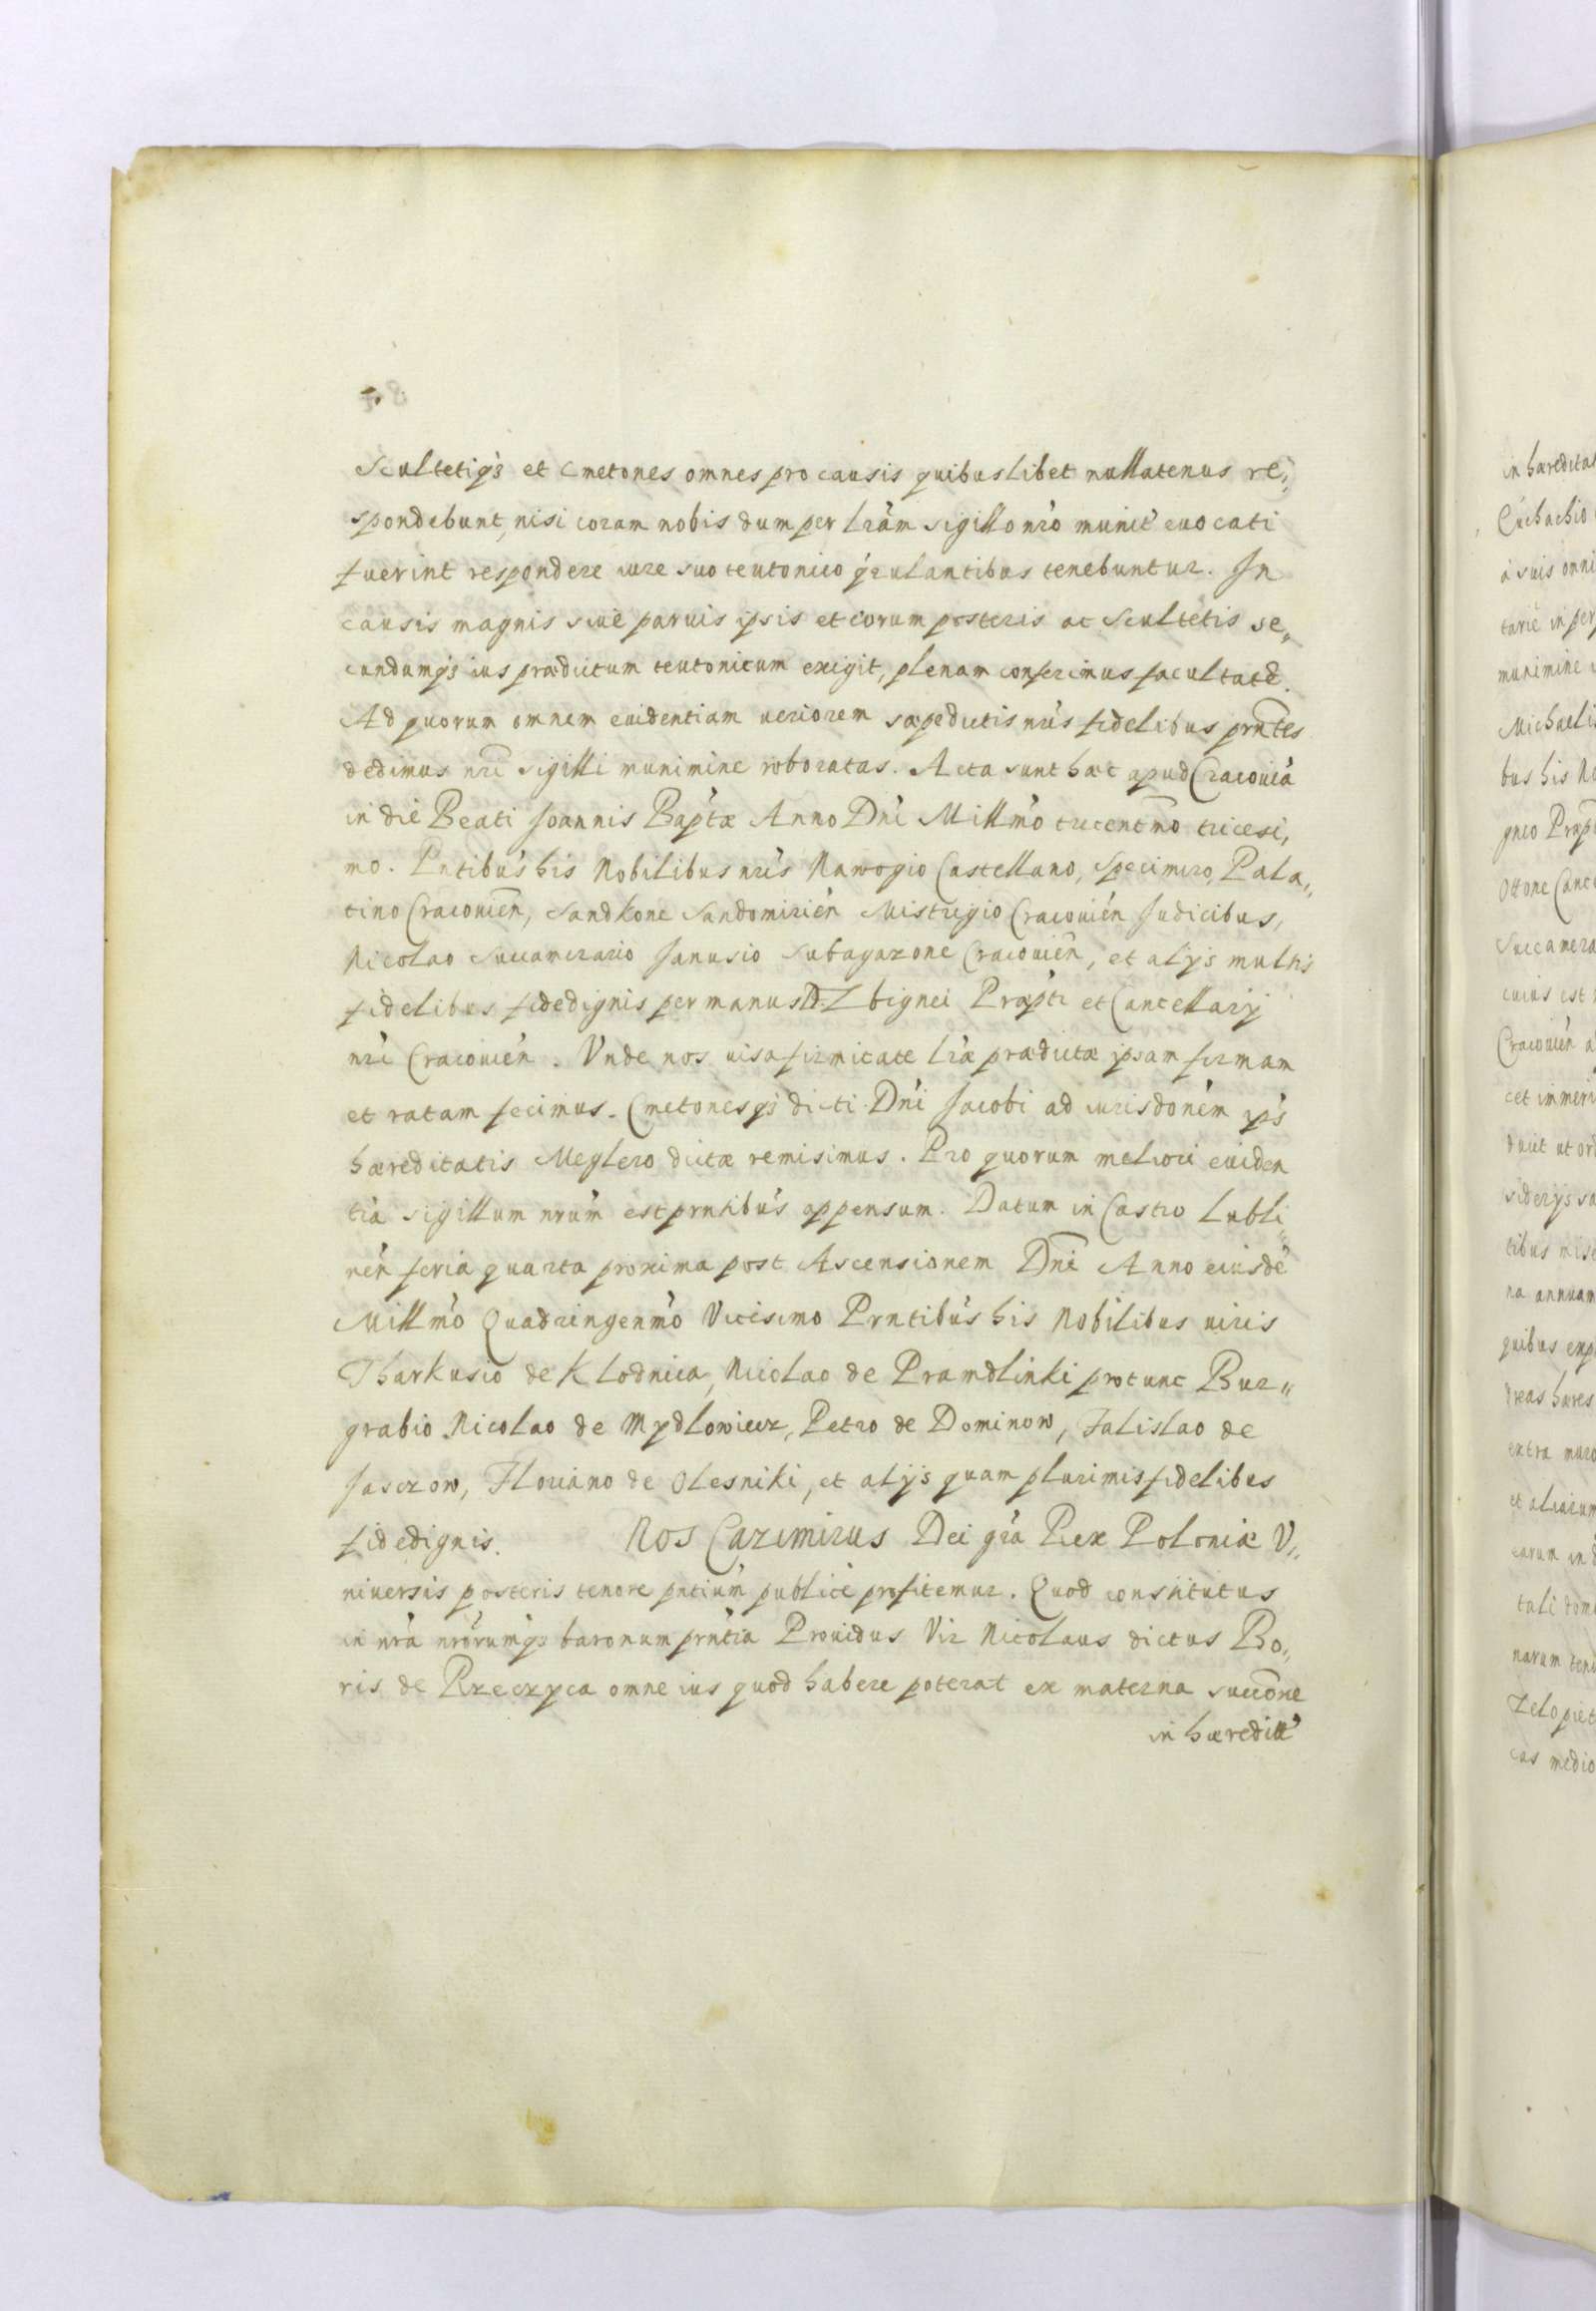 Scultetiqs et Cmetones omnes pro causis quibuslibet nullatenus re„
spondebunt, nisi coram nobis dum per lrãm sigillo nrõ munit' euocati
fuerint respondere iure suo teutonico qrulantibus tenebuntur. In
causis magnis siue paruis ipsis et eorum posteris ac Scultetis se„
cundumqs ius prædictum teutonicum exigit, plenam conferimus facultatẽ.
Ad quorum omnem euidentiam ueriorem sæpedictis nris fidelibus prntes
dedimus nri sigilli munimine roboratas. Acta sunt hæc apud Cracouiã
in die Beati Joannis Baptæ Anno Dni Millmo trecentmo tricesi,
mo. Pntibus his Nobilibus nris Nawogio Castellano, Specimiro, Pala„
tino Cracouien, Sandkone Sandomirien Mistrigio Cracouien Judicibus,
Nicolao Succamerario Janusio Subagazone Cracouien, et alijs multis
fidelibus fidedignis per manus D. Zbignei Prapti et Cancellarij
nri Cracouien. Vnde nos uisa firmitate lræ prædictæ ipsam firmam
et ratam fecimus. Cmetonesqs dicti Dni Jacobi ad iurisdonem ips
hæreditatis Meglero dictæ remisimus. Pro quorum meliori euiden
tia sigillum nrum est prntibus appensum. Datum in Castro Lubli„
nen feria quarta proxima post Ascensionem Dni Anno eiusdẽ
Millmo Quadringenmo Vicesimo Prntibus his Nobilibus uiris
Tharkusio de Klodnica, Nicolao de Pramdlinki protunc Bur„
grabio Nicolao de Mydlowiecz, Petro de Dominow, Falislao de
Jasczow, Floriano de Olesniki, et alijs quam plurimis fidelibus
fidedignis. Nos Cazimirus Dei gra Rex Poloniæ V„
niuersis posteris tenore pntium publice profitemur. Quod constitutus
in nra nrorumqs baronum prntia Prouidus Vir Nicolaus dictus Bo„
ris de Rzeczyca omne ius quod habere poterat ex materna succone
in hæredit'
in hæreditat
Cuchachio
á suis omni
tarie in per
munimine
Michaeli
bus his No
gneo Prapt
Ottone Canc
Succamera
cuius est
Cracouien a
cet immeri
duit ut ord
siderijs sa
tibus mise
na annuam
quibus exp
dreas hæres
extra muro
et aliarum
earum in d
tali domi
narum tend
Zelo piet
cas medio